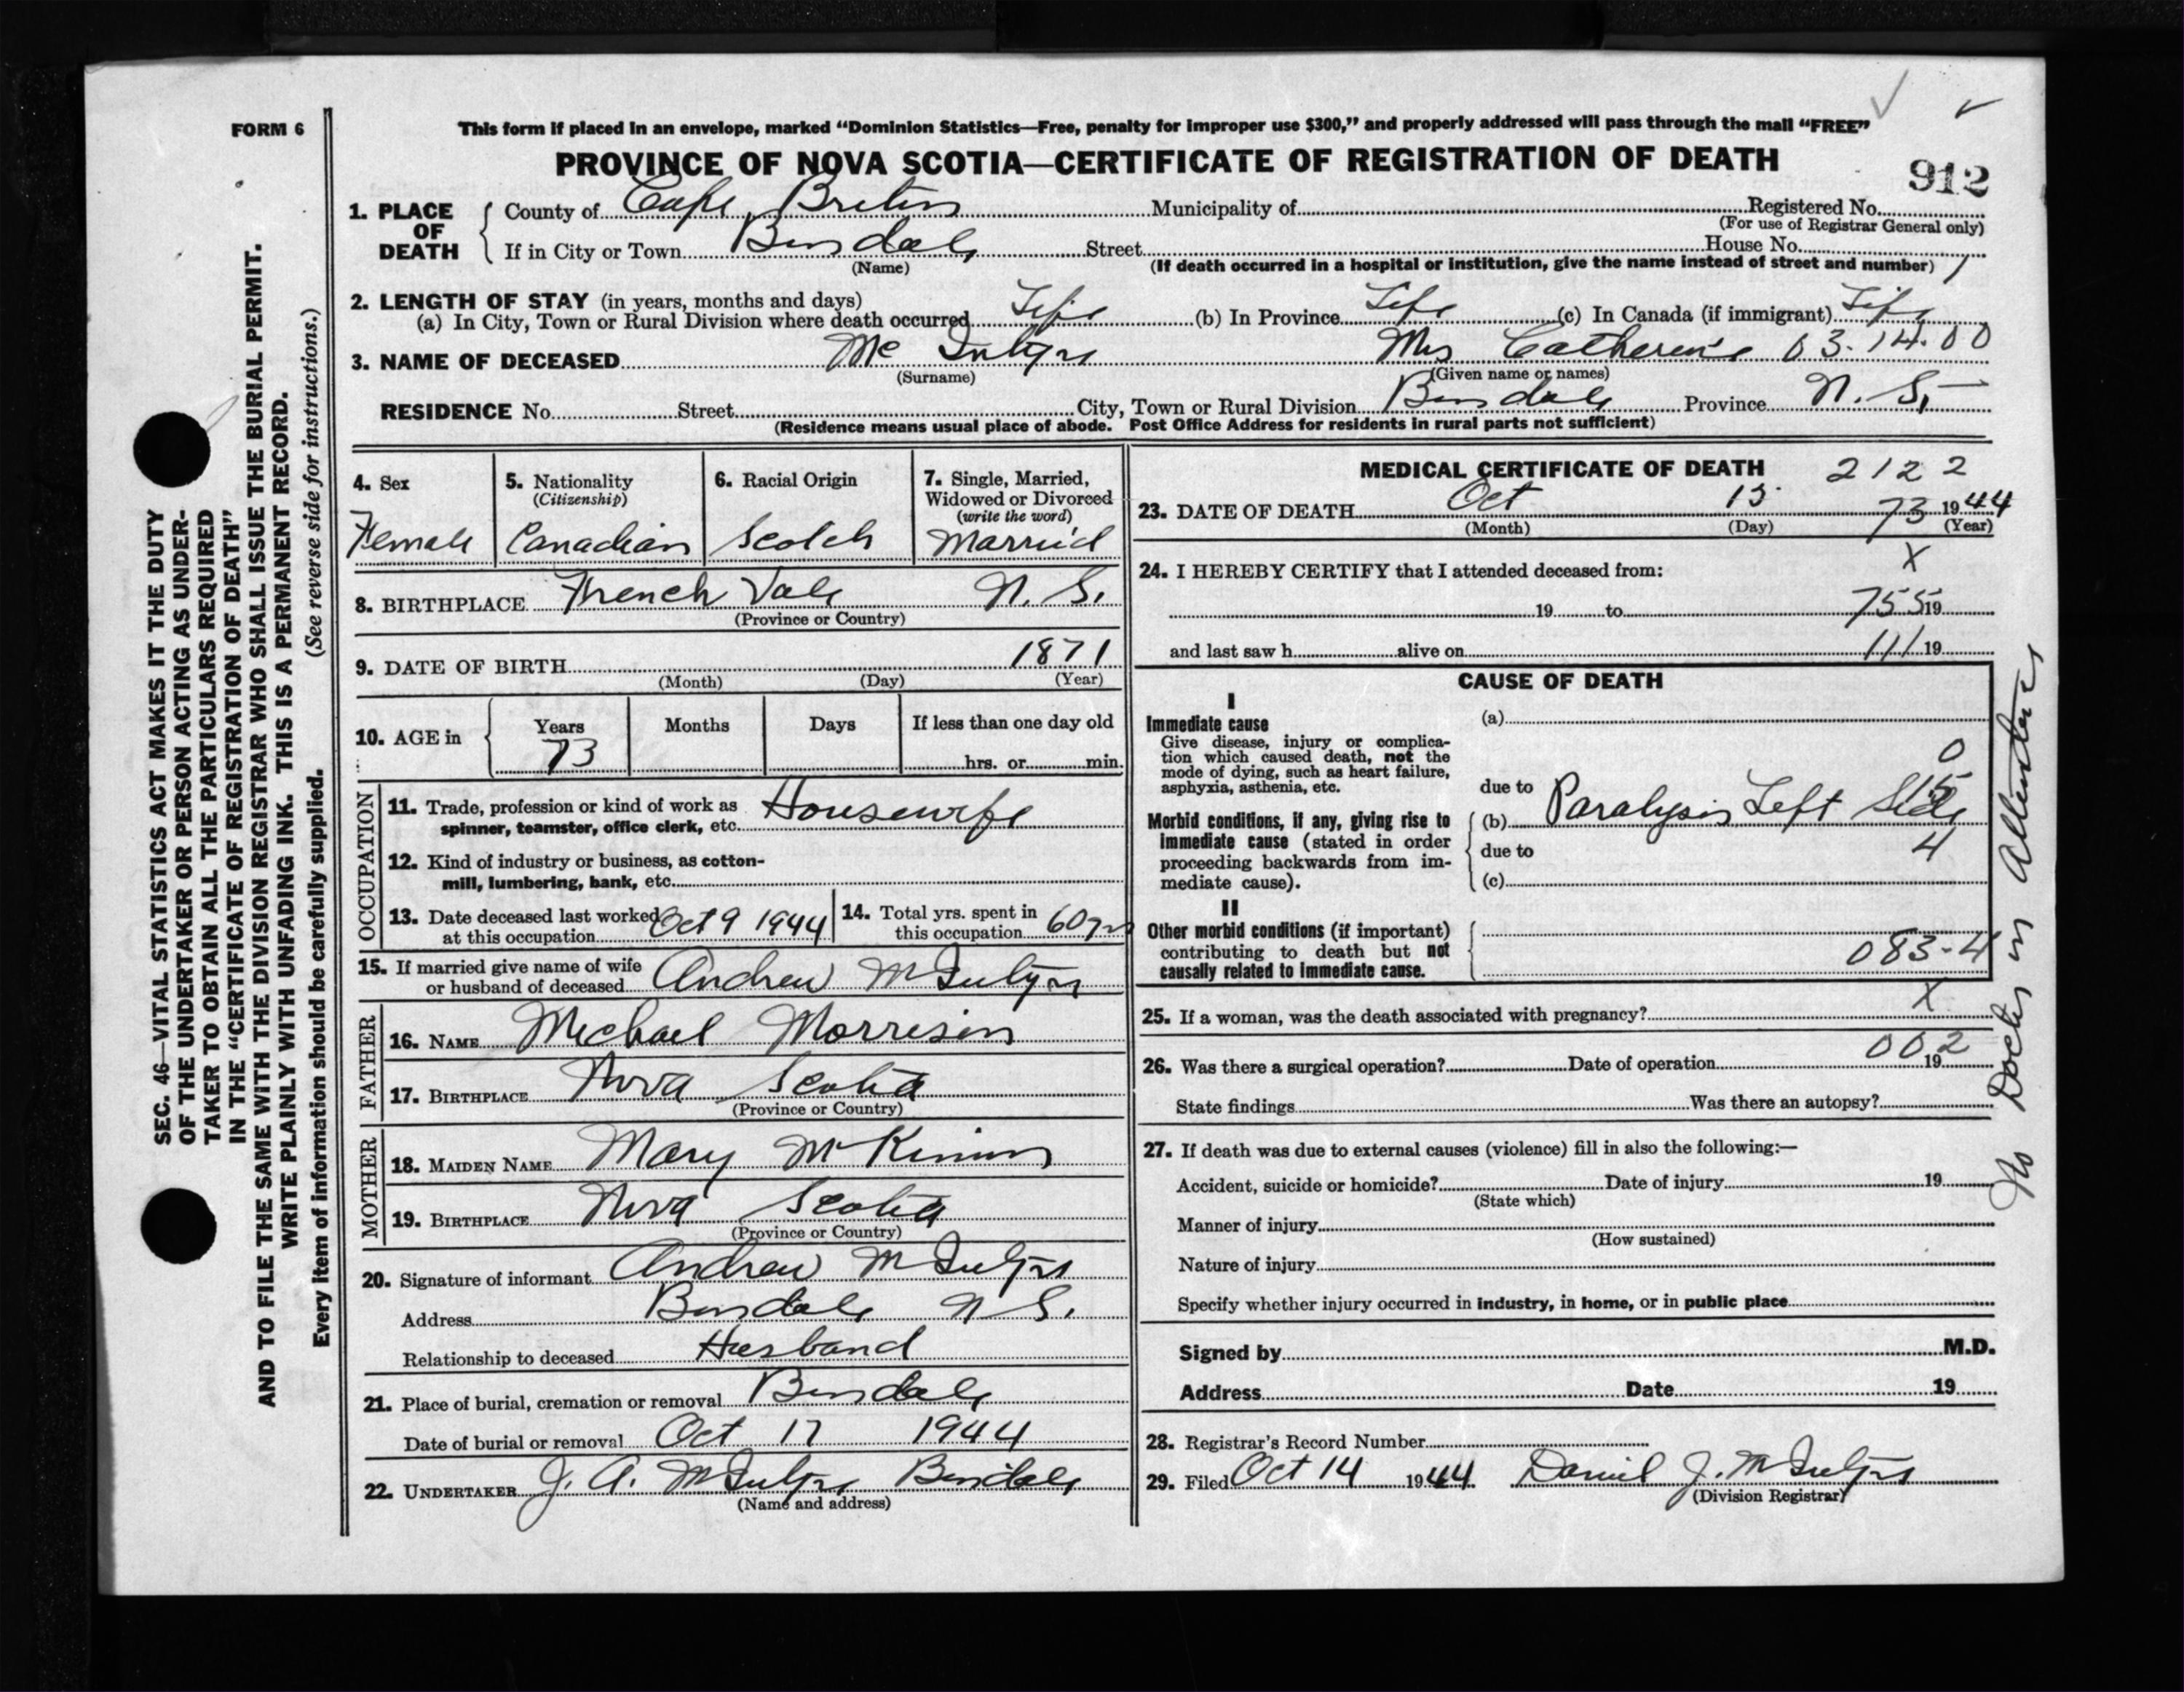 FORM 6
This form if placed in an envelope, marked “Dominion Statistics—Free, penalty for improper use $300,” and properly addressed will pass through the mail “FREE”
PROVINCE OF NOVA SCOTIA—CERTIFICATE OF REGISTRATION OF DEATH
912
1. PLACE OF DEATH County of Cape Breton Municipality of Registered No.
(For use of Registrar General only)
If in City or Town Bensdale Street House No.
(Name) (If death occurred in a hospital or institution, give the name instead of street and number) 1
2. LENGTH OF STAY (in years, months and days)
(a) In City, Town or Rural Division where death occurred Life (b) In Province Life (c) In Canada (if immigrant) Life
3. NAME OF DECEASED Mc Intyre Mrs Catherine 03.14.00
(Surname) (Given name or names)
RESIDENCE No. Street City, Town or Rural Division Bensdale Province N. S.
(Residence means usual place of abode. Post Office Address for residents in rural parts not sufficient)
4. Sex 5. Nationality (Citizenship) 6. Racial Origin 7. Single, Married, Widowed or Divorced (write the word)
Female Canadian Scotch Married
8. BIRTHPLACE French Vale N. S.
(Province or Country)
9. DATE OF BIRTH 1871
(Month) (Day) (Year)
10. AGE in Years Months Days If less than one day old
73 hrs. or min.
OCCUPATION
11. Trade, profession or kind of work as spinner, teamster, office clerk, etc. Housewife
12. Kind of industry or business, as cotton-
mill, lumbering, bank, etc.
13. Date deceased last worked at this occupation Oct 9 1944 14. Total yrs. spent in this occupation 60 yrs
15. If married give name of wife or husband of deceased Andrew McIntyre
FATHER
16. NAME Michael Morrison
17. BIRTHPLACE Nova Scotia
(Province or Country)
MOTHER
18. MAIDEN NAME Mary McKinnon
19. BIRTHPLACE Nova Scotia
(Province or Country)
20. Signature of informant Andrew McIntyre
Address Bensdale N S.
Relationship to deceased Husband
21. Place of burial, cremation or removal Bensdale
Date of burial or removal Oct 17 1944
22. UNDERTAKER J. A. McIntyre Bensdale
(Name and address)
MEDICAL CERTIFICATE OF DEATH 2122
23. DATE OF DEATH Oct 13 73 1944
(Month) (Day) (Year)
24. I HEREBY CERTIFY that I attended deceased from: X
19 to 755 19
and last saw h alive on 111 19
CAUSE OF DEATH
I
Immediate cause (a)
Give disease, injury or complica-
tion which caused death, not the
mode of dying, such as heart failure,
asphyxia, asthenia, etc. 0
due to 15
Morbid conditions, if any, giving rise to
immediate cause (stated in order
proceeding backwards from im-
mediate cause).
(b) Paralysis Left Side
due to 4
(c)
II
Other morbid conditions (if important)
contributing to death but not
causally related to immediate cause. 083-4
25. If a woman, was the death associated with pregnancy? X
26. Was there a surgical operation? Date of operation 002 19
State findings Was there an autopsy?
27. If death was due to external causes (violence) fill in also the following:—
Accident, suicide or homicide? Date of injury 19
(State which)
Manner of injury
(How sustained)
Nature of injury
Specify whether injury occurred in industry, in home, or in public place
Signed by M.D.
Address Date 19
28. Registrar's Record Number
29. Filed Oct 14 1944 Daniel J. McIntyre
(Division Registrar)
No Doctor in Attendance
SEC. 46—VITAL STATISTICS ACT MAKES IT THE DUTY
OF THE UNDERTAKER OR PERSON ACTING AS UNDER-
TAKER TO OBTAIN ALL THE PARTICULARS REQUIRED
IN THE “CERTIFICATE OF REGISTRATION OF DEATH”
AND TO FILE THE SAME WITH THE DIVISION REGISTRAR WHO SHALL ISSUE THE BURIAL PERMIT.
WRITE PLAINLY WITH UNFADING INK. THIS IS A PERMANENT RECORD.
Every item of information should be carefully supplied. (See reverse side for instructions.)